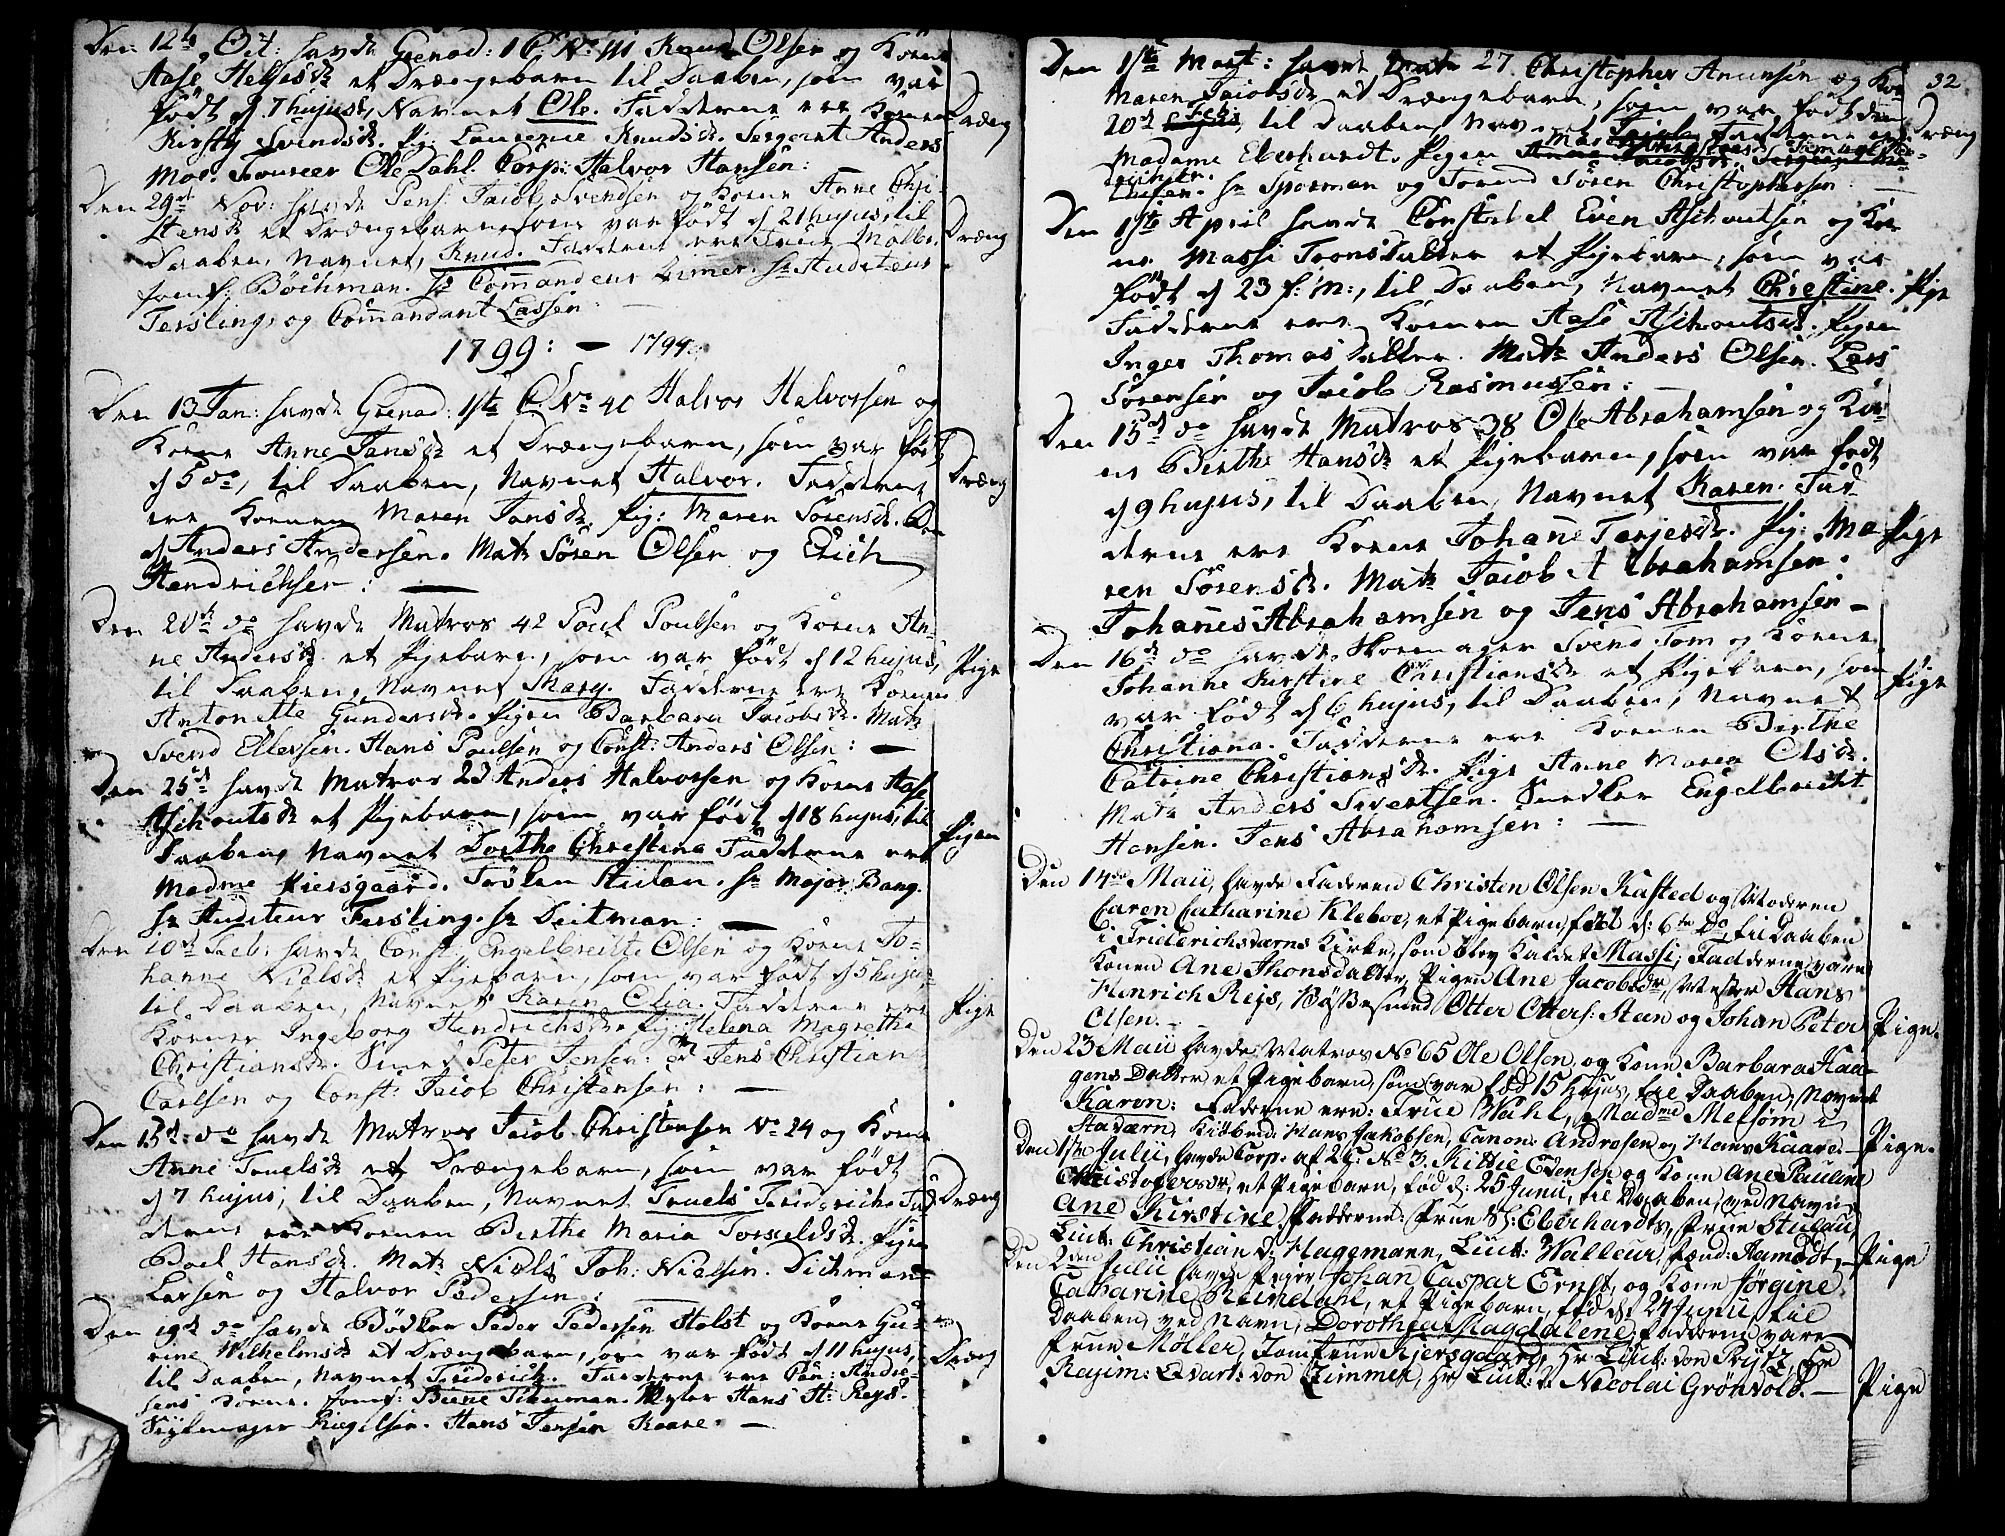 Den 12te Oct: havde Grenad: 1 C. No 111 Knud Olsen og Kone
Aase Helgesdr et Drængebarn til Daaben, som var
født d. 7 hujus, Navnet Ole. Fadderne ere Konen
Kirsty Svendsdr. Pig: Laurence Knudsdr. Sergeant Anders
Moe. Foureer Ole Dahl. Corp: Halvor Hansen:
Dræng
Den 29de Nov: havde Pens: Jacob Svendsen og Kone Anne Chri-
stensdr et Drængebarn som var født d 21 hujus, til
Daaben, Navnet, Knud. Fadderne ere Frue Møller.
Jomf: Bøchman. Hr Commandeur Zimer. Hr Auditeur
Tersling, og Commandant Lassen
Dræng
1799: — 1799:
Den 13 Jan: havde Grenad: 1ste C No 40 Halvor Halvorsen og
Kone Anne Jansdr et Drængebarn, som var født
d 5 do, til Daaben, Navnet Halvor. Fadderne
ere Konen Maren Jansdr. Pig: Maren Sørensdr.
Anders Andersen. Matr Søren Olsen og Erich
Hendrichsen: —
Dræng
Den 20de do havde Matros 42 Poul Poulsen og Kone An-
ne Andersdr. et Pigebarn, som var født d 12 hujus,
til Daaben, Navnet Mary. Fadderne ere Konen
Antonette Gundersdr. Pigen Barbara Jacobsdr. Matr
Svend Ellersen. Hans Poulsen og Const: Anders Olsen: —
Pige
Den 25de havde Matros 23 Anders Halvorsen og Kone Aase
Aschoutsdr et Pigebarn, som var født d 18 hujus, til
Daaben, Navnet Dorthe Christina Fadderne ere
Madme Kiersgaard. Frøken Stulan. Hr Major Bang.
Hr Auditeur Tersling. Hr Deitman: —
Pigen
Den 10de Feb: havde Const: Engelbrecht Olsen og Kone Jo-
hanne Nielsdr et Pigebarn, som var født d 5 hujus,
til Daaben, Navnet Karen Olea. Fadderne ere
Konen Ingeborg Hendrichsdr. Pig: Helena Magrethe
Christiansdr. Smed Peter Jensen: Jens Christian
Carlsen og Const: Jacob Christensen: —
Pige
Den 15de: do havde Matros Jacob Christensen No 24 og Kone
Anne Truelsdr et Drængebarn, som var født
d 7 hujus, til Daaben, Navnet Truels Friderich. Fad-
derne ere Konen Birthe Maria Torvaldsdr. Pigen
Boel Hansdr. Matr Niels Joh: Nielsen. Dichman
Larsen og Halvor Pedersen:
Dræng
Den 19de do havde Bødker Peder Pedersen Holst og Kone Gu-
rine Wilhelmsdr et Drængebarn, som var født d 11 hujus,
til Daaben, Navnet Friderich. Fadderne ere Andre-
sens Kone. Jomf: Birte Mester Hans H: Reys.
Seylmager Riegelsen. Hans Jensen Kaare. —
Dræng
32.
Den 1ste Mart: havde Matr 27 Christopher Anunsen og Kone
Maren Jacobsdr et Drængebarn, som var født den
20de Feb: til Daaben, Navnet Jacob. Fadderne ere
Madame Eberhardt. Pigen
Hr Sposman og Søren Christophersen
Dræng
Den 1ste April havde Constabel Even Aschoutsen og Ko-
ne Massi Tronsdatter et Pigebarn, som var
født d 23 f: M:, til Daaben, Navnet Christine.
Fadderne ere Konen Aase Aschoutsdr. Pigen
Inger Thomasdatter. Matr Anders Olsen. Lars
Sørensen og Jacob Rasmussen:
Pige
Den 15de do havde Matros 38 Ole Abrahamsen og Ko-
ne Birthe Hansdr et Pigebarn, som var født
d 9 hujus, til Daaben, Navnet Karen. Fad-
derne ere Konen Johanne Terjesdr. Pig: Ma-
ren Sørensdr. Matr Jacob Abrahamsen.
Johannes Abrahamsen og Jens Abrahamsen —
Pige
Den 16de do havde Skoemager Svend Tom og Kone
Johanne Kirstine Christiansdr et Pigebarn, som
var født d 6 hujus, til Daaben, Navnet
Christiana. Fadderne ere Konen Birthe
Catrine Christiansdr. Pige Anne Maria Olsdr.
Matr Anders Sivertsen. Snedker Engelbrecht
Hansen. Jens Abrahamsen: —
Pige
Den 14de Maii, havde Faderen Christen Olsen Kasted og Moderen
Caren Catharine Kleboe, et Pigebarn født d: 6te do, til Daaben
i Friderichsværns Kirke, som blev kaldet Massi; Fadderne vare
Konen Ane Thonsdatter, Pigen Ane Jacobsdr, Mester Hans
Hinrich Reys, Bøssesmed Otter Otters: Steen og Johan Peter
Olsen. —
Pige.
Den 23 Maii havde Matros No 65 Ole Olsen og Kone Barbara Haa-
gens Datter, et Pigebarn, som var fød 15 hujus, til Daaben, Navnet
Karen: Fadderne ere: Frue Wahl, Madme Melsom i
Staværn, Kiøbmd: Hans Jakobsen, Canon: Andresen og Hans Kaare. —
Pige.
Den 1ste Julii, havde Corp: af 2 C: No 3. Kittil Edensen og Kone Ane Pauline
Christofersdr, et Pigebarn, fød d: 25 Junii, til Daaben, ved Navn
Ane Kirstine. Fadderne: Frue Eberhardts, Frue Stulau,
Liut: Christian d: Hagemann, Liut: Walleur, Fænd: Aamodt, —
Pige
Den 2den Julii havde Feyer Johan Caspar Ernst, og Kone Jørgine
Catharine Reindahl, et Pigebarn, fød d: 24 Junii til
Daaben, ved Navn, Dorothea Magdalene, Fadderne vare
Frue Møller, Jomfrue Kjersgaard, Hr Liut: von Prytz, Hr
Regim: Qvart: von Zimmer, Hr Liut: v: Nicolai Grønvold. —
Pige